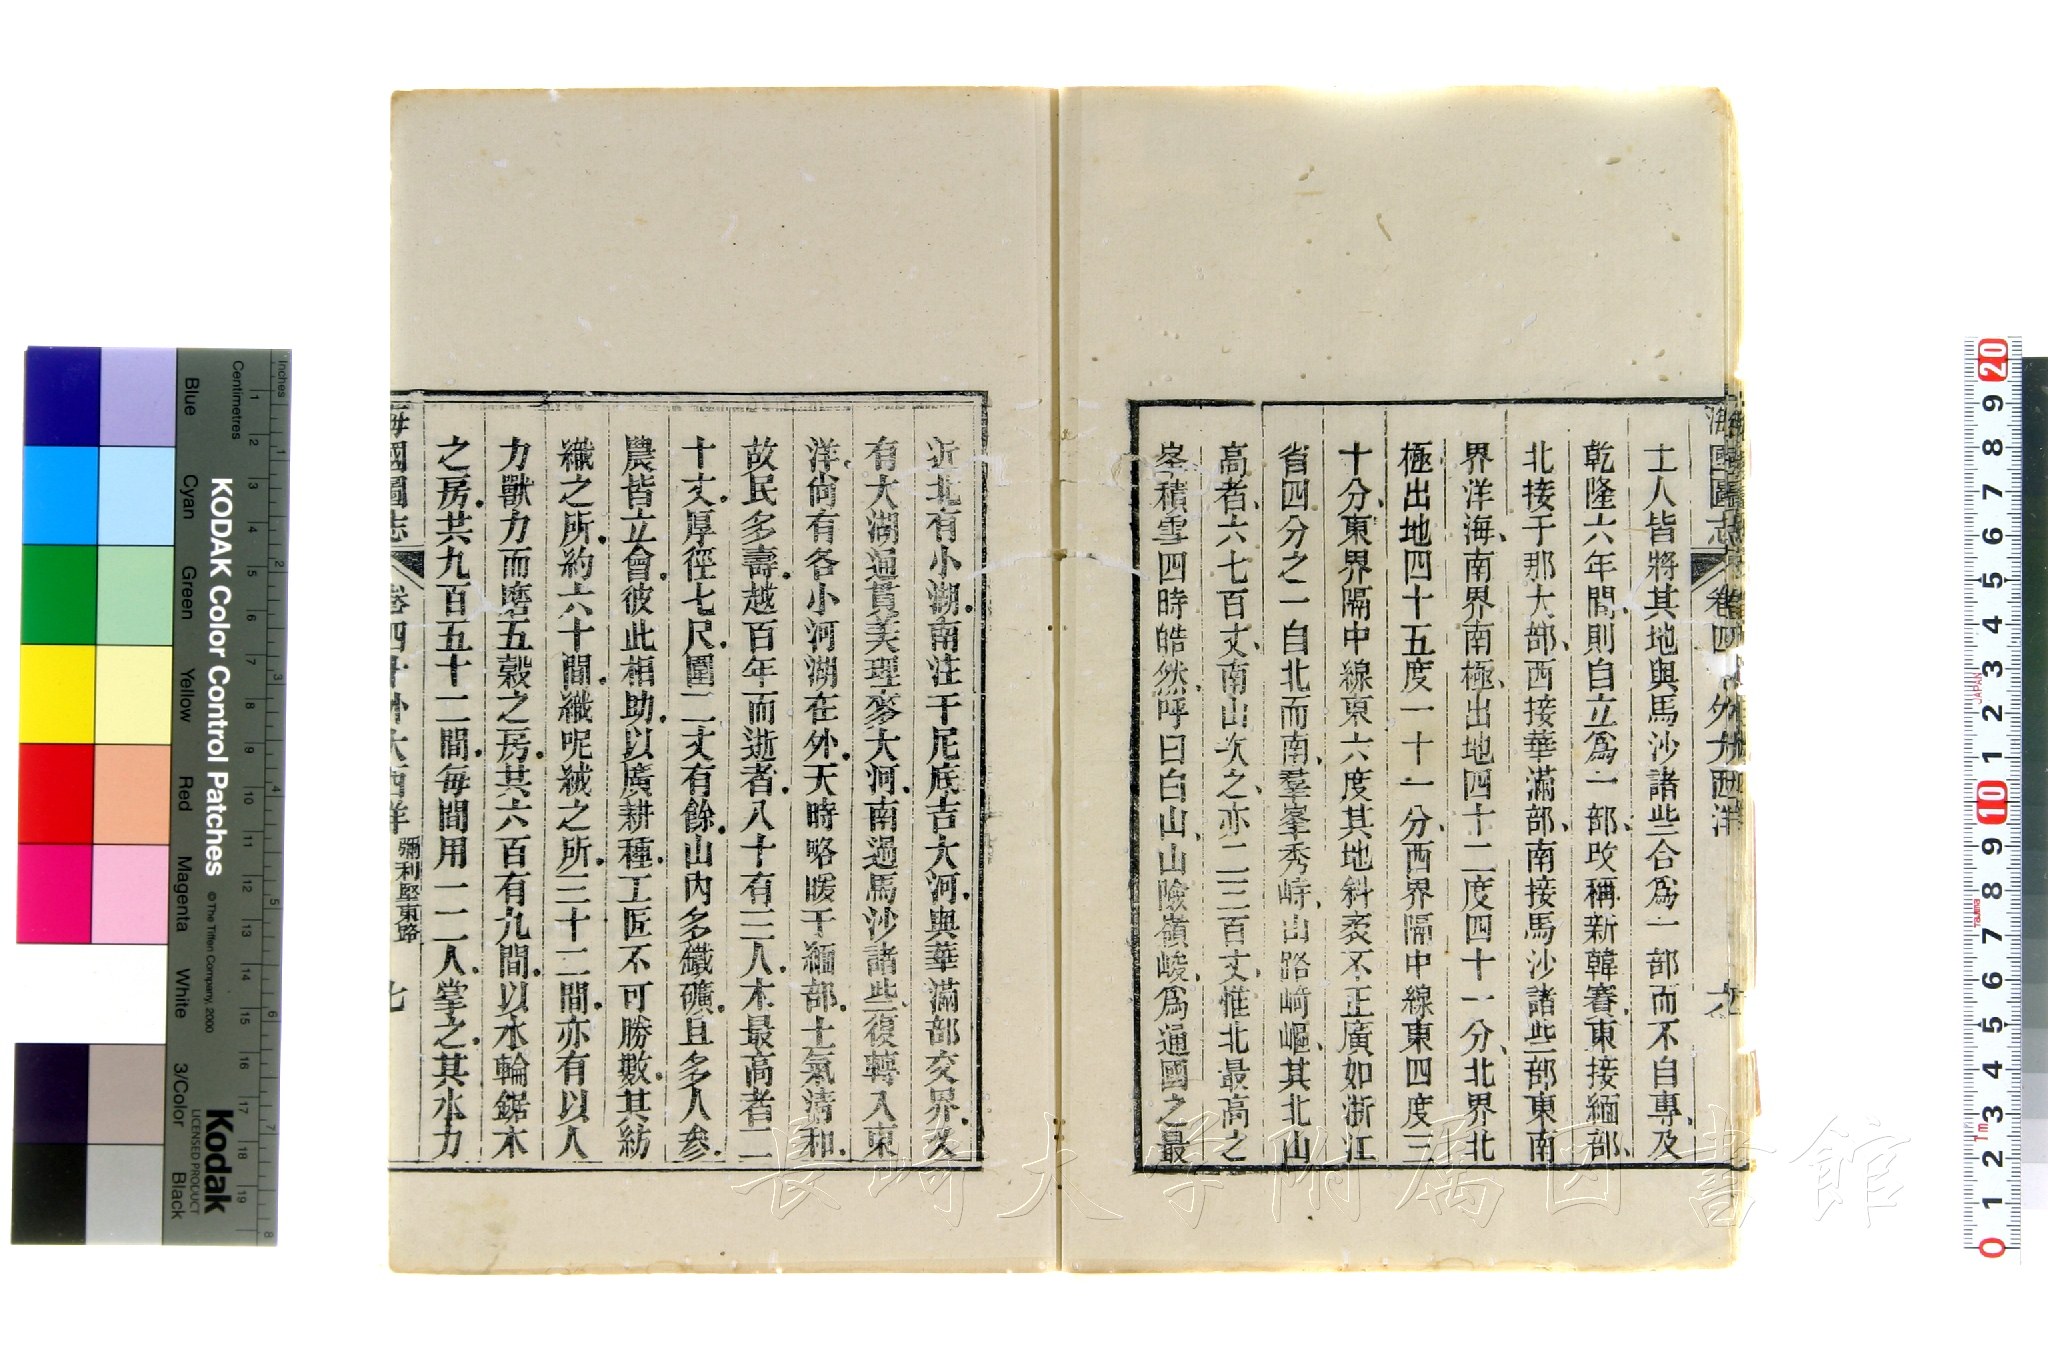 士人皆將其地與馬沙諸些合爲一部而不自專及
乾隆六年間則自立爲一部改稱新韓賽東接緬部
北接于那大部西接華滿部南接馬沙諸些部東南
界洋海南界南極出地四十二度四十一分北界北
極出地四十五度一十一分西界隔中線東四度三
十分東界隔中線東六度其地斜袤不正廣如浙江
省四分之一自北而南羣峯秀峙山路﨑嶇其北山
高者六七百丈南山次之亦二三百丈惟北最高之
峯積雪四時皓然呼曰白山山險嶺峻爲通國之最
近北有小湖南注干尼底吉大河與華滿部交界又
有大湖通貫美理麥大河南過馬沙諸些復轉入東
洋尙有各小河湖在外天時略暖于緬部土氣清和
故民多壽越百年而逝者八十有三人木最高者二
十丈厚徑七尺圍二丈有餘山內多鐵礦且多人參
農皆立會彼此相助以廣耕種工匠不可勝數其紡
織之所約六十間織呢絨之所三十二間亦有以人
力獸力而磨五穀之房共六百有九間以水輪鋸木
之房共九百五十二間每間用一二人掌之其水力
海國圖志 卷四十 外大西洋 彌利堅東路 七
KODAK Color Control Patches
© The Tiffen Company, 2000
Kodak
LICENSED PRODUCT
Inches
Centimetres
Blue
Cyan
Green
Yellow
Red
Magenta
White
3/Color
Black
長崎大学附属図書館